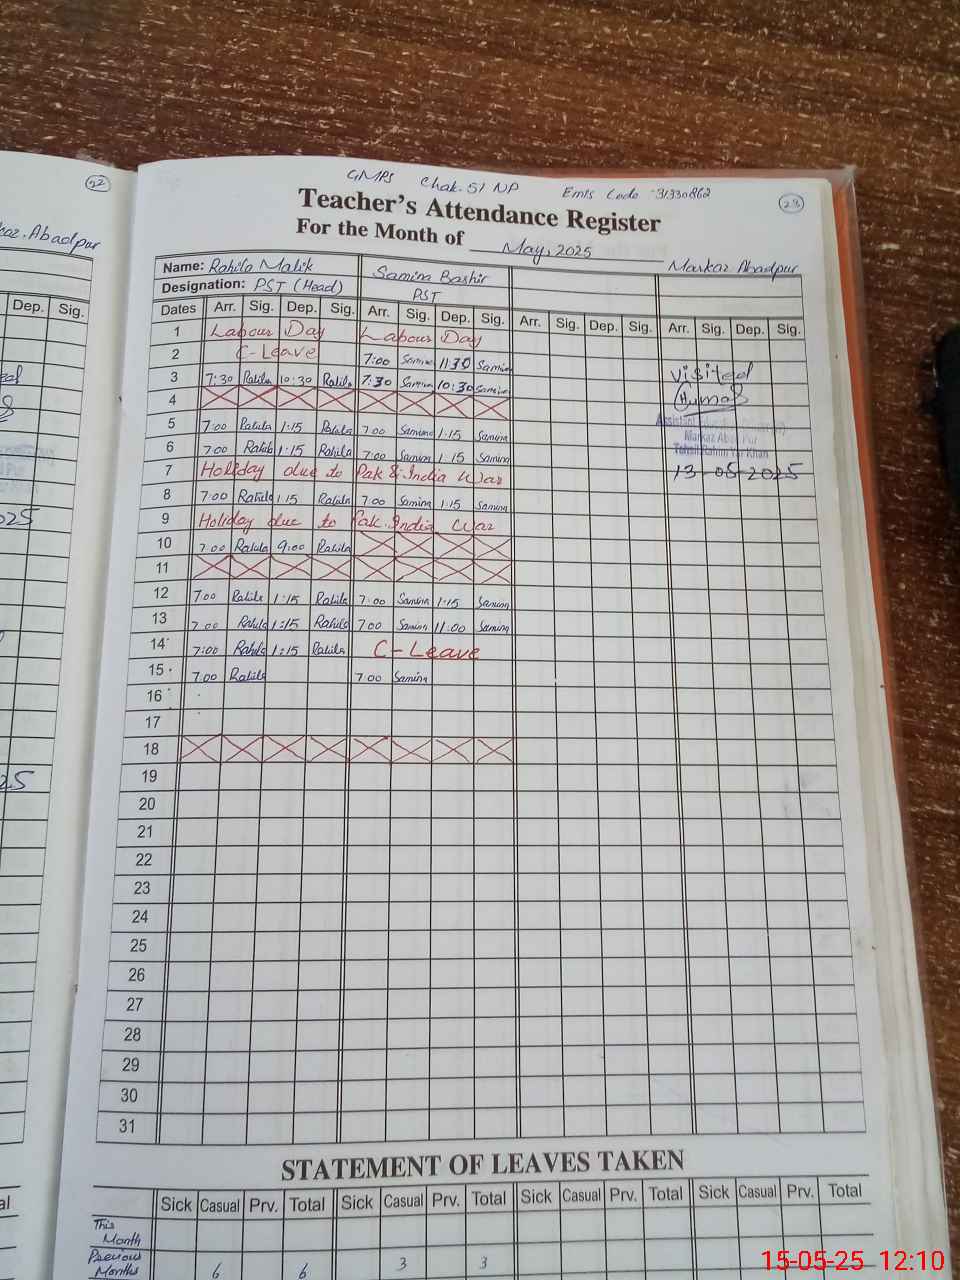 22
Abadpur
Dep. Sig.
GMPS Chak. 51 NP Emis Code 31330862
23
Teacher's Attendance Register
For the Month of May, 2025
Markaz Abadpur
Name: Rahila Malik Samina Bashir
Designation: PST (Head) PST
Dates Arr. Sig. Dep. Sig. Arr. Sig. Dep. Sig. Arr. Sig. Dep. Sig. Arr. Sig. Dep. Sig.
1 Labour Day Labour Day
2 C-Leave 7:00 Samina 11:30 Samina
3 7:30 Rahila 10:30 Rahila 7:30 Samina 10:30 Samina
4
5 7:00 Rahila 1:15 Rahila 7:00 Samina 1:15 Samina
6 7:00 Rahila 1:15 Rahila 7:00 Samina 1:15 Samina
7 Holiday due to Pak & India War
8 7:00 Rahila 1:15 Rahila 7:00 Samina 1:15 Samina
9 Holiday due to Pak. India War
10 7:00 Rahila 9:00 Rahila
11
12 7:00 Rahila 1:15 Rahila 7:00 Samina 1:15 Samina
13 7:00 Rahila 1:15 Rahila 7:00 Samina 11:00 Samina
14 7:00 Rahila 1:15 Rahila C-Leave
15 7:00 Rahila 7:00 Samina
16
17
18
19
20
21
22
23
24
25
26
27
28
29
30
31
visited
Humaf
Assistant Education
Markaz Abad Pur
Tehsil Rahim Yar Khan
13-05-2025
STATEMENT OF LEAVES TAKEN
Sick Casual Prv. Total Sick Casual Prv. Total Sick Casual Prv. Total Sick Casual Prv. Total
This Month
Previous Months 6 6 3 3
15-05-25 12:10